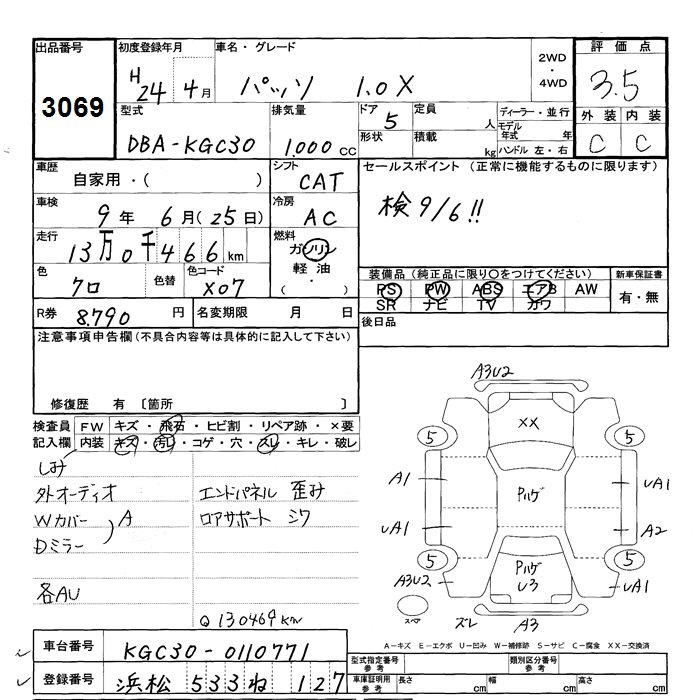 出品番号
3069
初度登録年月
H24 4月
車名・グレード
パッソ 1.0X
2WD・4WD
評価点
3.5
外装 内装
C C
型式
DBA-KGC30
排気量
1,000 CC
ドア 5
形状
定員 人
積載 kg
ディーラー・並行
モデル年式 年
ハンドル 左・右
車歴
自家用・( )
シフト
CAT
車検
9年 6月(25日)
冷房
AC
走行
13万0千466km
燃料
ガソリン
軽油
( ・ )
色
クロ
色替
色コード
X07
R券
8,790円
名変期限 月 日
セールスポイント (正常に機能するものに限ります)
検9/6!!
装備品(純正品に限り○をつけてください)
PS PW ABS エアB AW
SR ナビ TV カワ
新車保証書
有・無
後日品
注意事項申告欄(不具合内容等は具体的に記入して下さい)
修復歴 有 〔箇所 〕
検査員記入欄
FW キズ・飛石・ヒビ割・リペア跡・×要
内装 キズ・汚レ・コゲ・穴・スレ・キレ・破レ
しみ
外オーディオ
Wカバー
Dミラー
A
各AU
エンドパネル 歪み
ロアサポート シワ
Q 130469km
A3U2
XX
5 5
A1
Pハゲ
UA1
UA1
A2
5
Pハゲ
U3
5
A3U2
UA1
スペア
ズレ
A3
A-キズ E-エクボ U-凹み W-補修跡 S-サビ C-腐食 XX-交換済
車台番号
KGC30-0110771
登録番号
浜松 533 ね 127
型式指定番号 参考
類別区分番号 参考
車庫証明用 参考
長さ cm
幅 cm
高さ cm